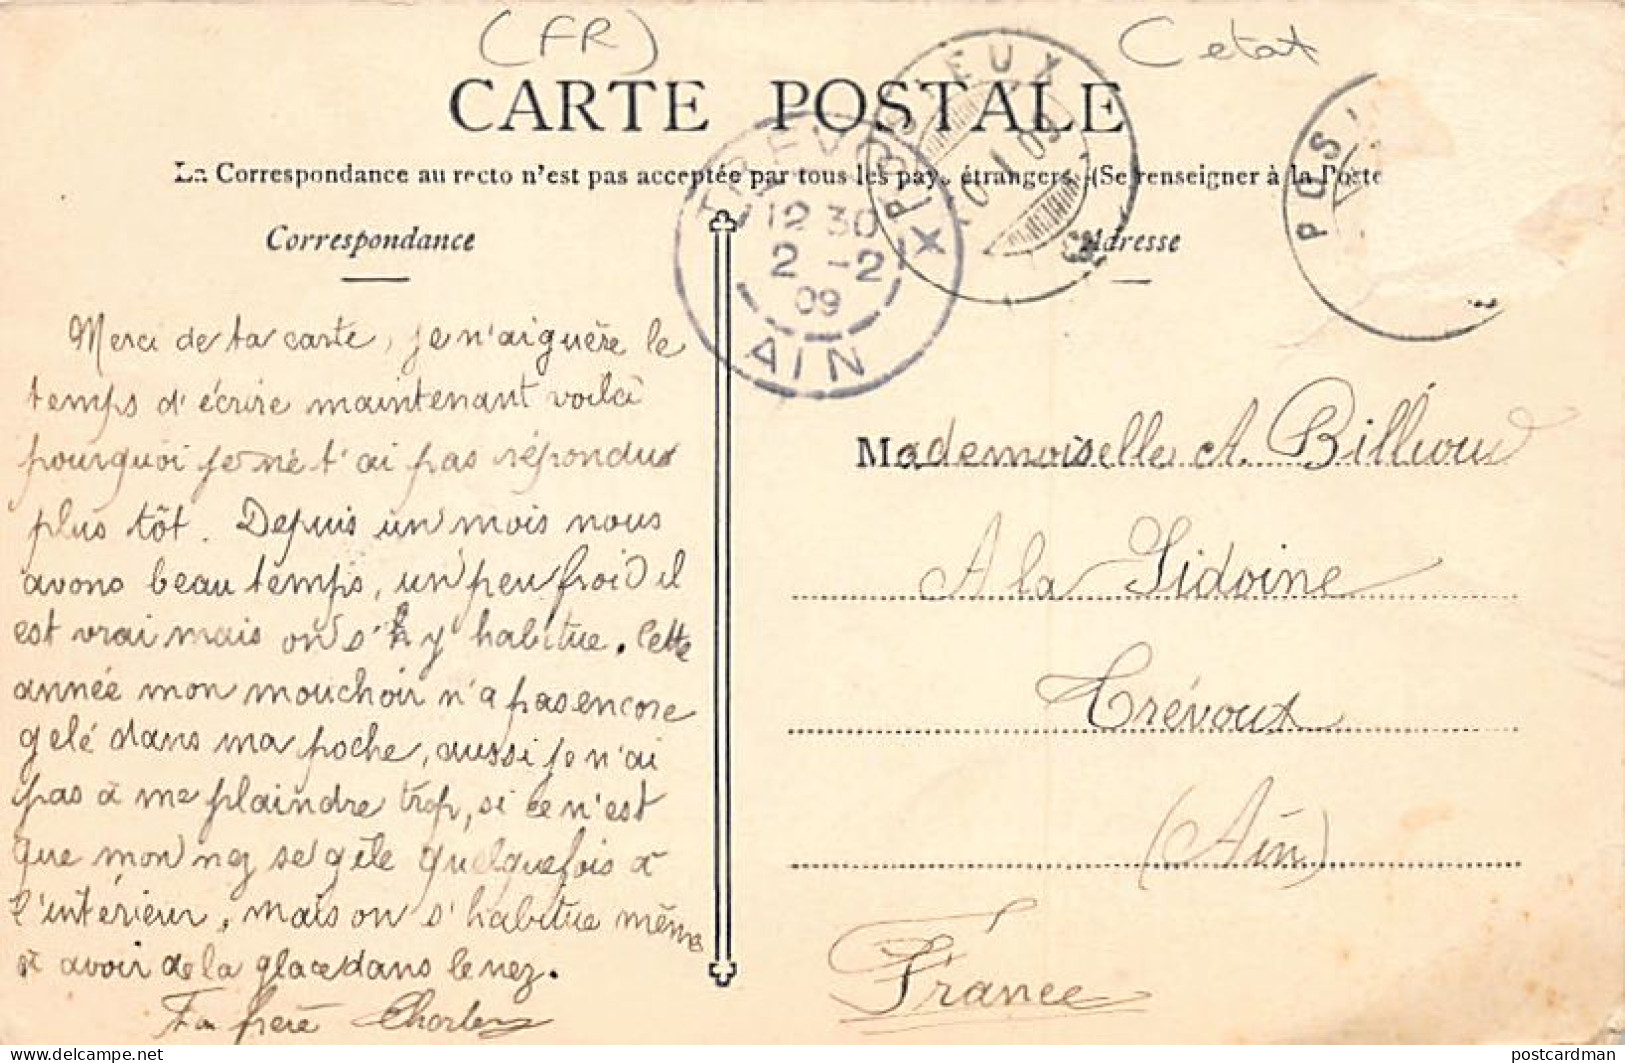 (FR)
C etat
CARTE POSTALE
La Correspondance au recto n'est pas acceptée par tous les pays étrangers. (Se renseigner à la Poste
Correspondance
Adresse
POSIEUX
TREVOUX
12 30
2 -2
09
AIN
POSI
Merci de ta carte, je n'ai guère le
temps d'écrire maintenant voilà
pourquoi je ne t'ai pas répondu
plus tôt. Depuis un mois nous
avons beau temps, un peu froid il
est vrai mais on s'y habitue. Cette
année mon mouchoir n'a pas encore
gelé dans ma poche, aussi je n'ai
pas à me plaindre trop, si ce n'est
que mon nez se gèle quelquefois à
l'intérieur, mais on s'habitue même
à avoir de la glace dans le nez.
Ton frère Charles
Mademoiselle A. Billioud
A la Sidoine
Trévoux
(Ain)
France
delcampe.net
postcardman